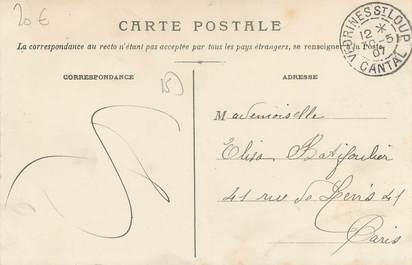 20 €
CARTE POSTALE
La correspondance au recto n'étant pas acceptée par tous les pays étrangers, se renseigner à la Poste
CORRESPONDANCE
ADRESSE
VEDRINES ST LOUP
12 *
30 -5
07
CANTAL
15)
Mademoiselle
Elisa Batifoulier
41 rue de 41
Paris